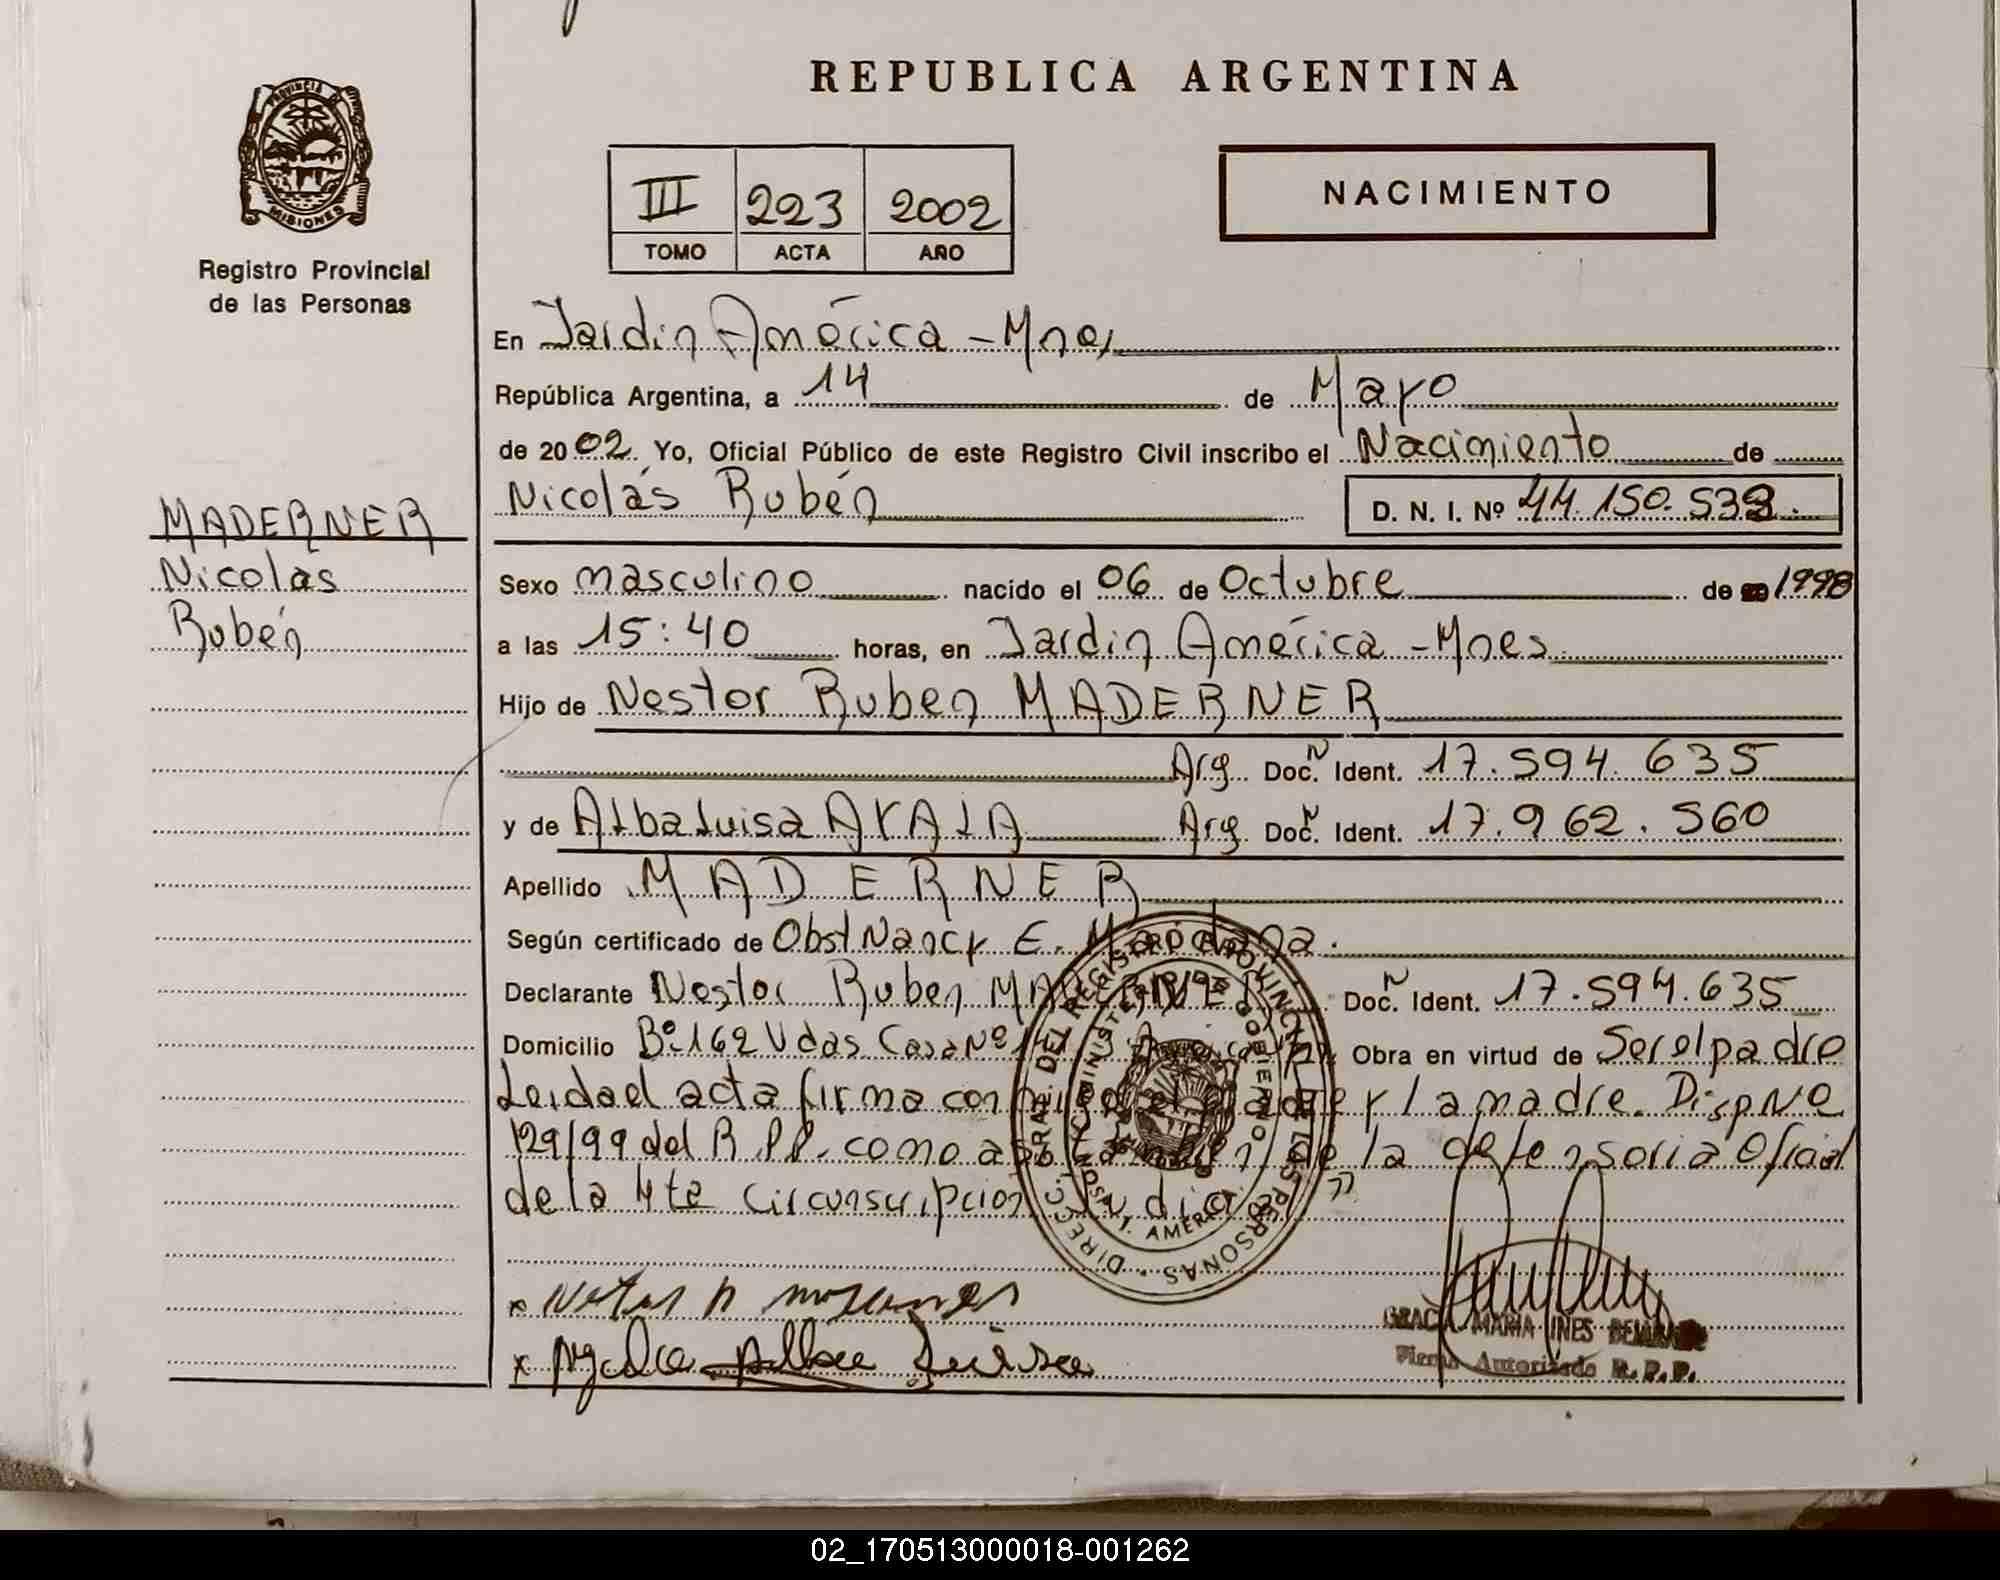 REPUBLICA ARGENTINA
PROVINCIA DE
MISIONES
Registro Provincial
de las Personas
III 223 2002
TOMO ACTA AÑO
NACIMIENTO
En Jardin América - Mnes
República Argentina, a 14 de Mayo
de 2002. Yo, Oficial Público de este Registro Civil inscribo el Nacimiento de
Nicolás Rubén D. N. I. Nº 44.150.539.
MADERNER
Nicolas
Rubén
Sexo masculino nacido el 06 de Octubre de 1998
a las 15:40 horas, en Jardin América - Mnes
Hijo de Nestor Ruben MADERNER
Arg. Doc. N Ident. 17.594.635
y de Alba Luisa AYALA Arg. Doc. N Ident. 17.962.560
Apellido MADERNER
Según certificado de Obst Nancy E. Maidana.
Declarante Nestor Ruben MADERNER Doc. N Ident. 17.594.635
Domicilio Bº 162 Vdas Casa Nº J. América Obra en virtud de Ser el padre
Leida el acta firma conmigo el padre y la madre. Disp Nº
129/99 del R.P.P. como asi tambien de la defensoria Oficial
de la 4ta Circunscripcion Judicial "
DIRECC. GRAL. DEL REGISTRO PROVINCIAL DE LAS PERSONAS
MINISTERIO DE GOBIERNO
J. AMERICA
x
x Ayala Alba Luisa
MARIA INES
Firma Autorizada R.P.P.
02_170513000018-001262